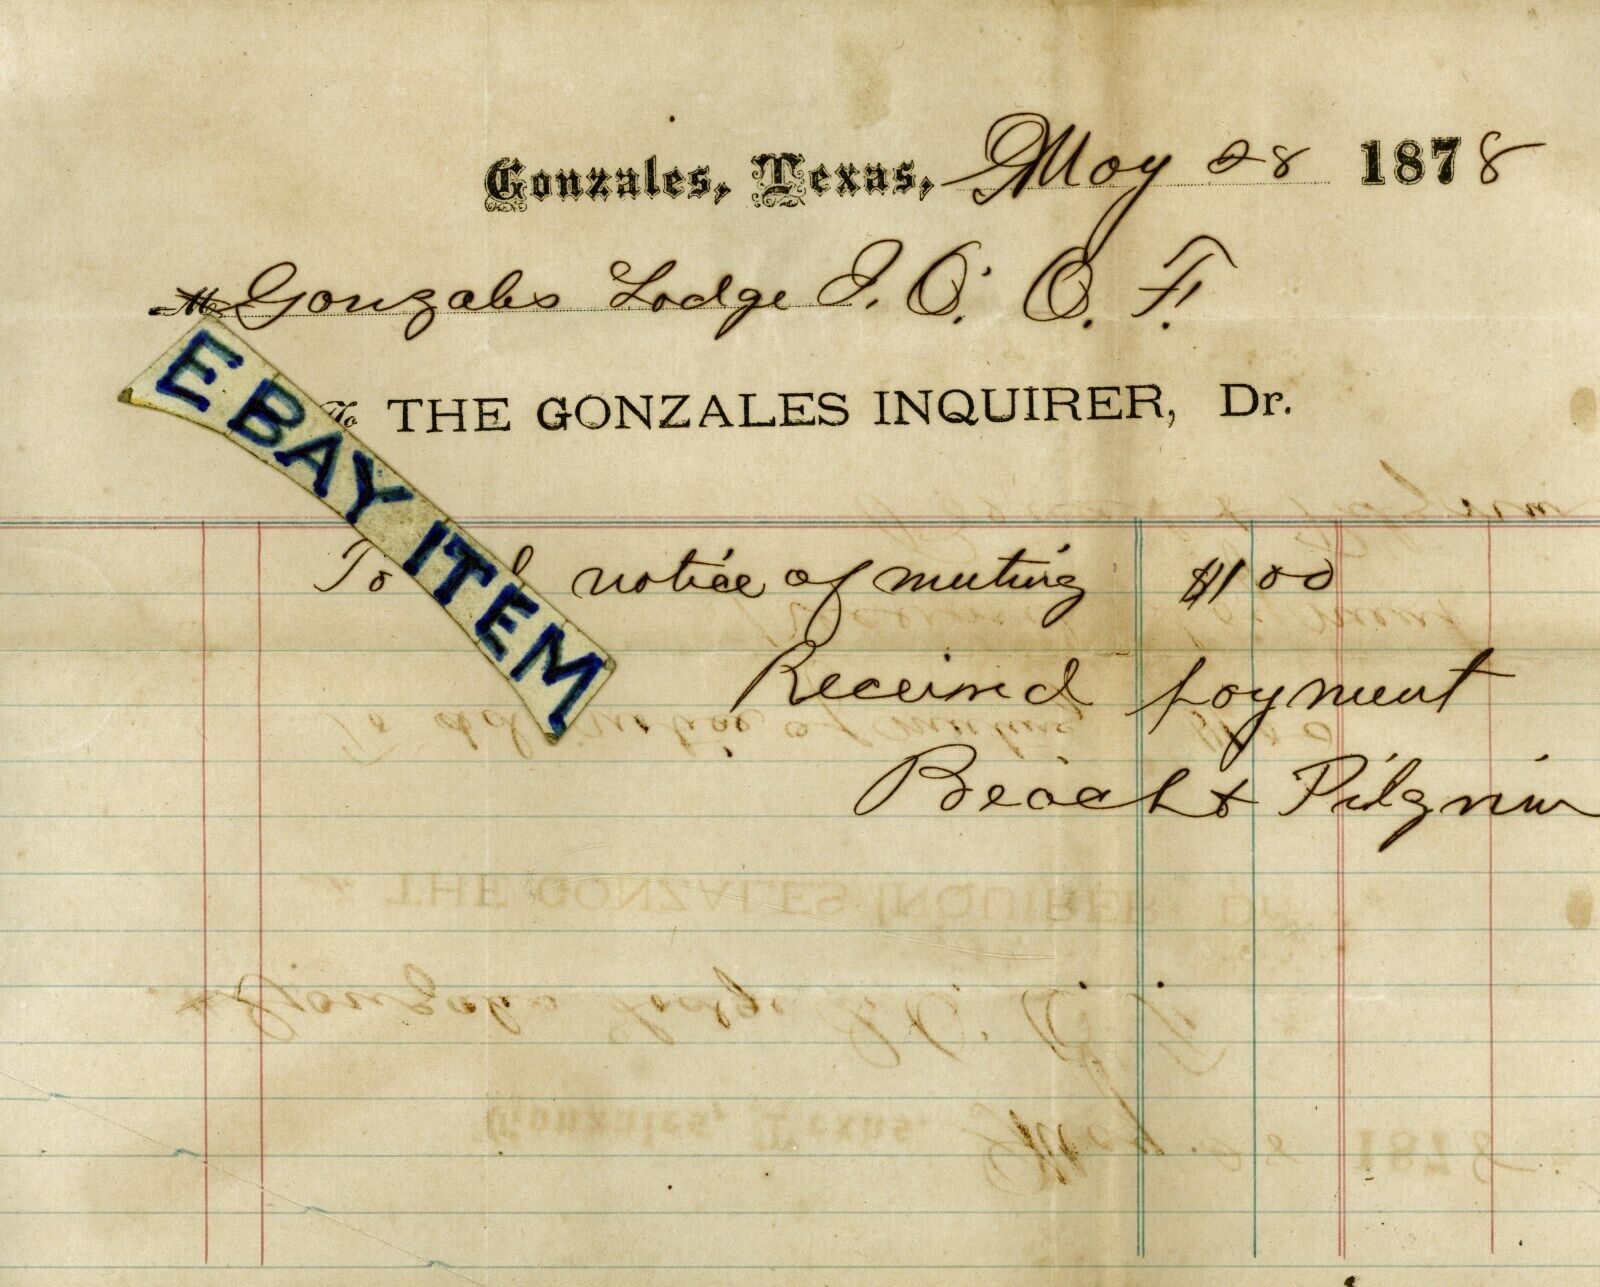 Gonzales, Texas, May 28 1878
M Gonzales Lodge I. O. O. F.
To THE GONZALES INQUIRER, Dr.
EBAY ITEM
To notice of meeting $1 00
Received payment
Beach & Pilgrim